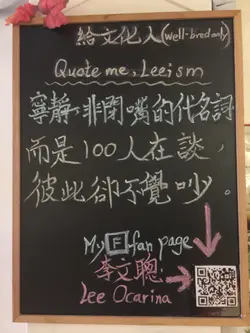 給文化人(well-bred only)
Quote me, Leeism
寧靜,非閉嘴的代名詞
而是100人在談,
彼此卻不覺吵。
My F fan page
李文聰
Lee Ocarina